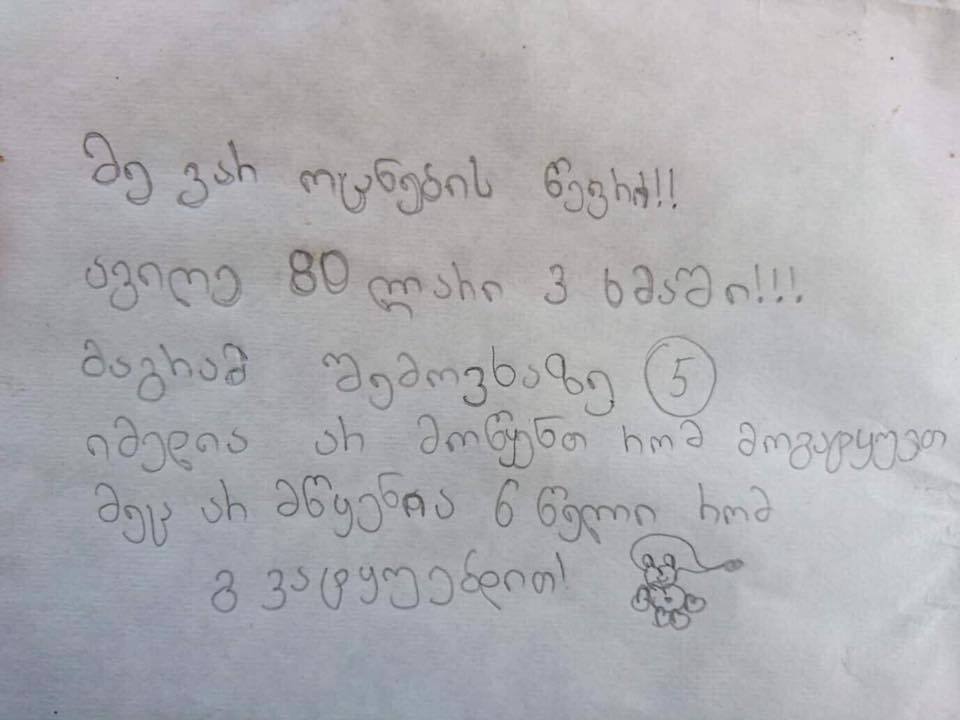 მე ვარ ოცნების წევრი!!
ავიღე 80 ლარი 3 ხმაში!!!
მაგრამ შემოვხაზე 5
იმედია არ მოწყენთ რომ მოგატყუეთ
მეც არ მწყენია 6 წელი რომ
გვატყუებდით!